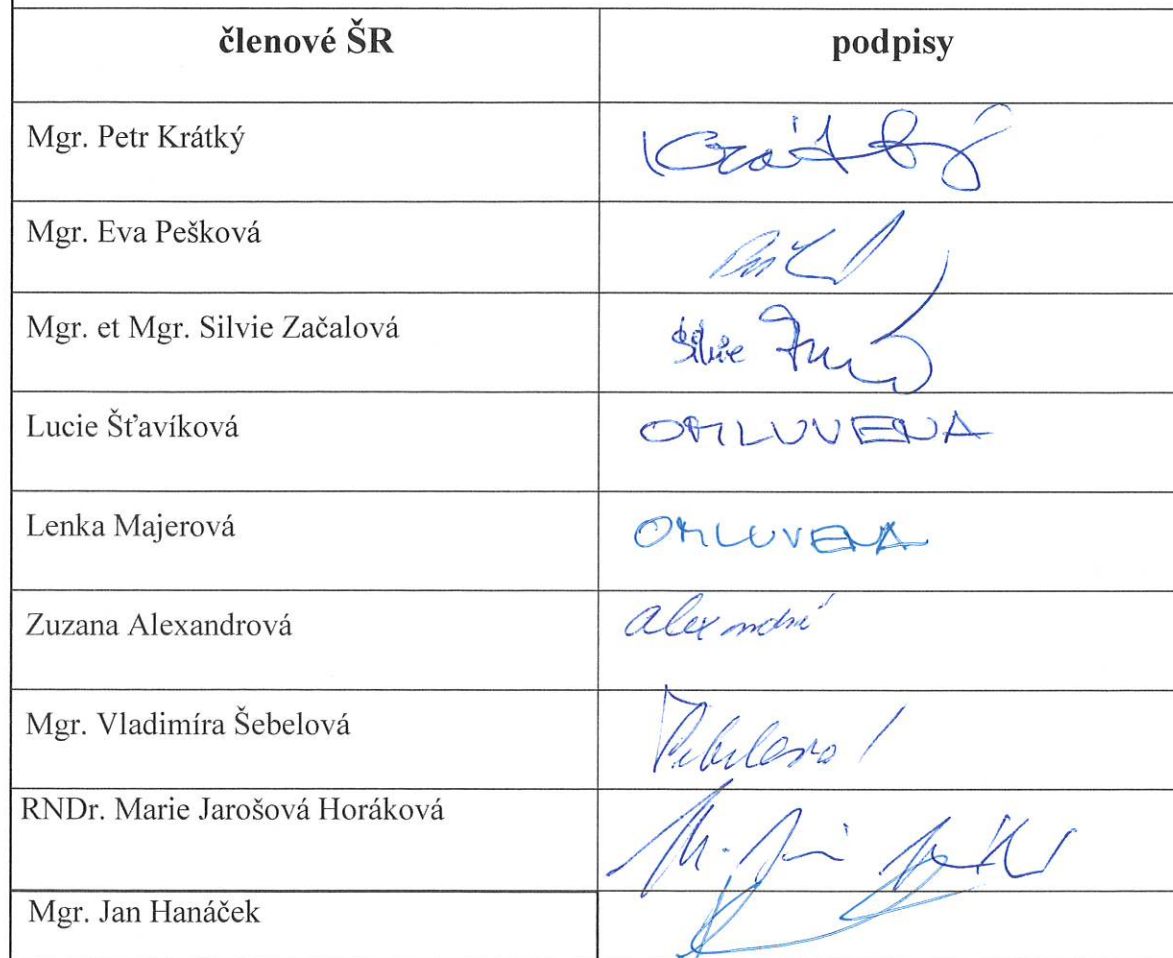 členové ŠR podpisy
Mgr. Petr Krátký Krátký
Mgr. Eva Pešková
Mgr. et Mgr. Silvie Začalová Silvie
Lucie Šťavíková OMLUVENA
Lenka Majerová OMLUVENA
Zuzana Alexandrová
Mgr. Vladimíra Šebelová
RNDr. Marie Jarošová Horáková
Mgr. Jan Hanáček